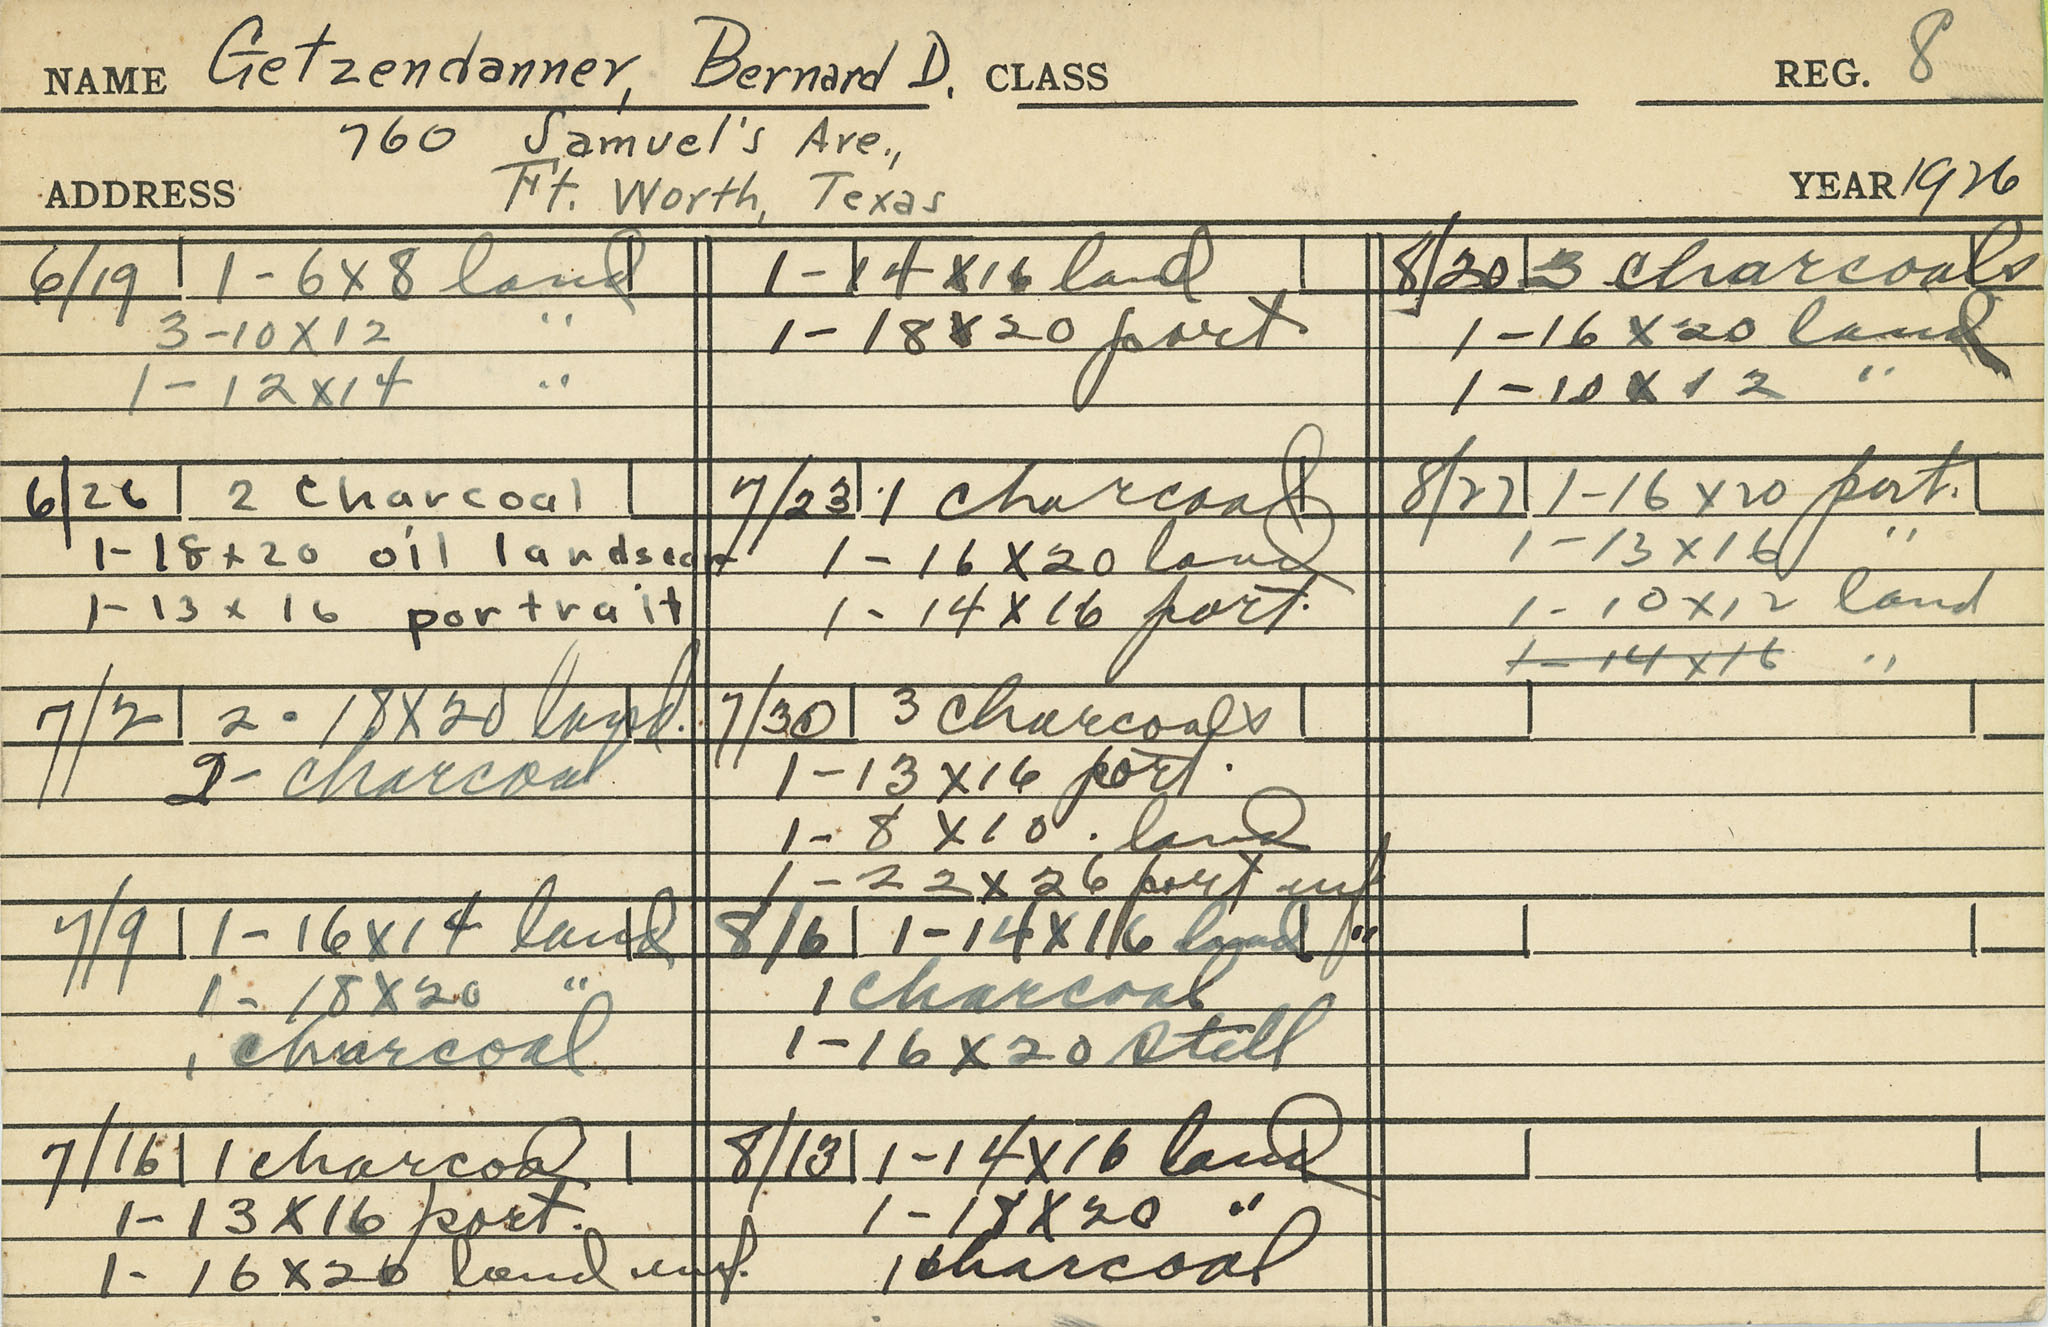 NAME Getzendanner, Bernard D. CLASS REG. 8
760 Samuel's Ave.,
ADDRESS Ft. Worth, Texas YEAR 1926
6/19 1-6x8 land
3-10x12 "
1-12x14 "
6/26 2 charcoal
1-18x20 oil landscap
1-13x16 portrait
7/2 2-18x20 land.
2-charcoal
7/9 1-16x14 land
1-18x20 "
1 charcoal
7/16 1 charcoal
1-13x16 port.
1-16x20 land unf.
1-14x16 land
1-18x20 port
7/23 1 charcoal
1-16x20 land
1-14x16 port.
7/30 3 charcoals
1-13x16 port.
1-8x10. land
1-22x26 port unf
8/6 1-14x16 land "
1 charcoal
1-16x20 still
8/13 1-14x16 land
1-18x20 "
1 charcoal
8/20 3 charcoals
1-16x20 land
1-10x12 "
8/27 1-16x20 port.
1-13x16 "
1-10x12 land
1-14x16 "